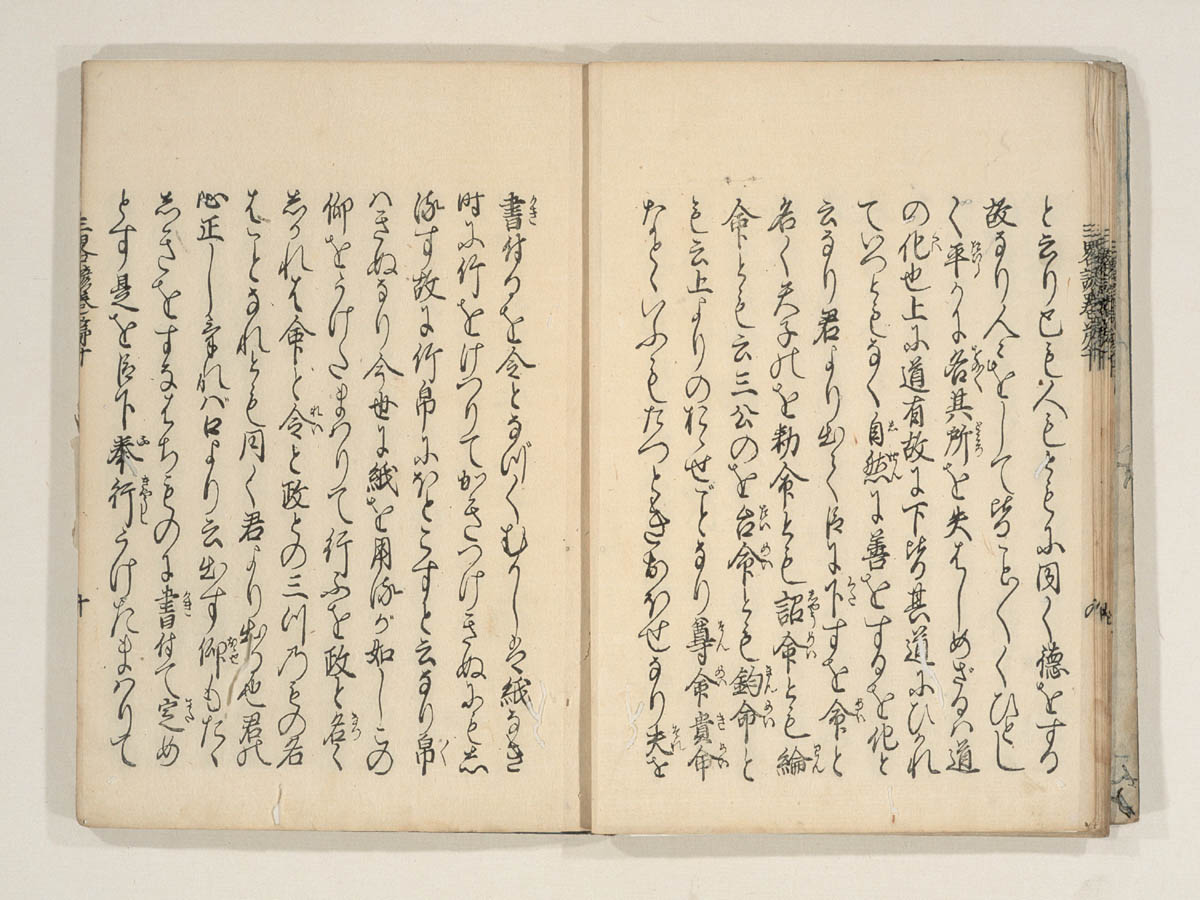 と云り己も人もともに同く徳をする
故なり人々をして皆こと〳〵くひとし
く平かに各其所を失はしめざるハ道
の化也上に道有故に下皆其道にひかれ
ていつともなく自然に善をするを化と
云なり君より出て臣に下すを命と
名く天子のを勅命とも詔命とも綸
命とも云三公のを台命とも鈞命と
も云上よりのおゝせごとなり尊命貴命
などゝいふもたつときおほせなり夫を
書付るを令となづくむかしは紙なき
時に竹をけづりてかきつけきぬにもし
るす故に竹帛にほどこすと云なり帛
ハきぬなり今世に紙を用るが如しこの
仰をうけたまハりて行ふを政と名く
しかれは命と令と政との三つのもの名
はことなれとも同く君より出る也君の
心正しけれバ口より云出す仰もたゝ
しきをすなはちものに書付て定め
とす是を臣下奉行うけたまハりて